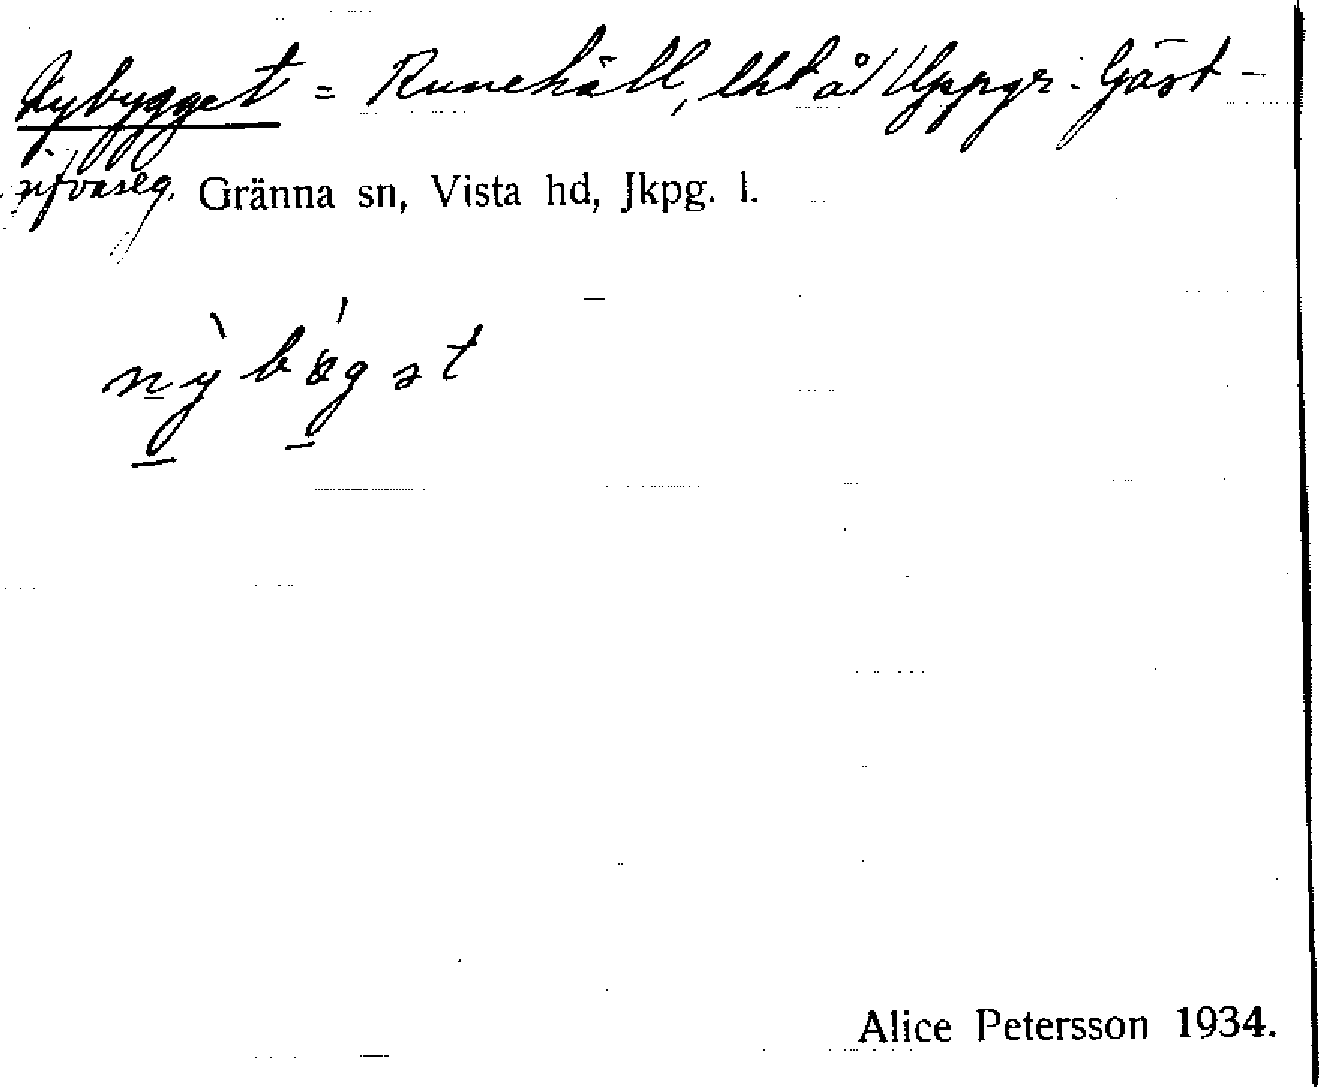 Nybygget = Runehäll, lht å Uppgr. Gäst-
Gränna sn, Vista hd, Jkpg. l.
Alice Petersson 1934.